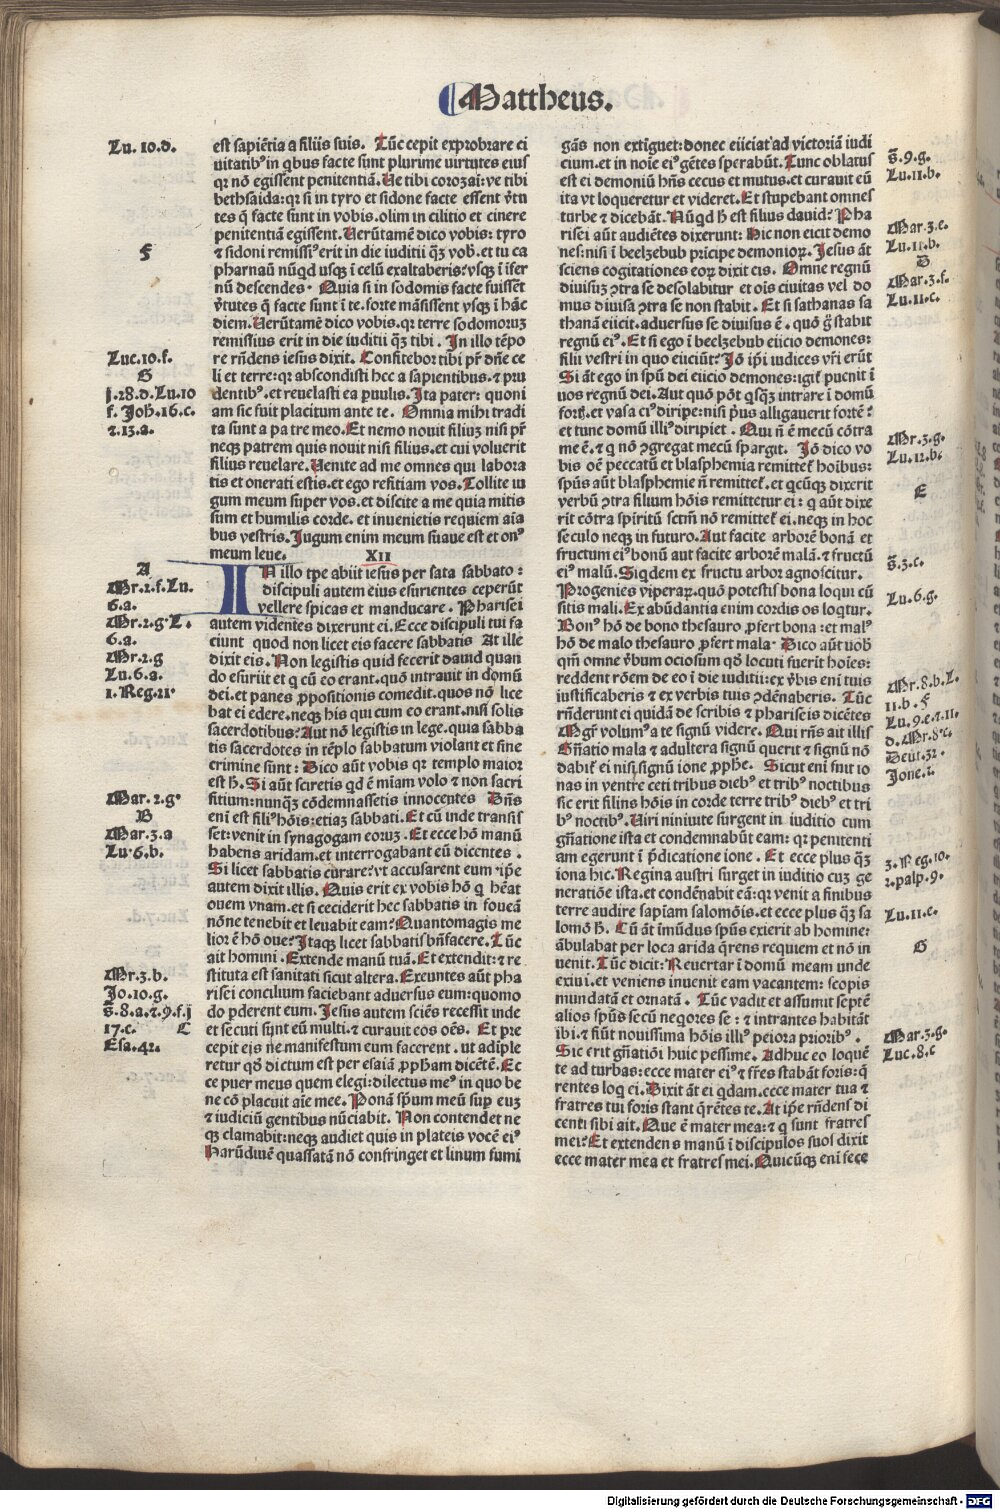 Mattheus.
Lu. 10.d.
F
Luc.10.f.
G
j.28.d.Lu.10
f. Joh.16.c.
⁊.13.a.
A
Mr.2.f.Lu.
6.a.
Mr.2.g.L.
6.a.
Mr.2.g
Lu.6.a.
1.Reg.21.
Mar.2.g.
B
Mar.3.a
Lu.6.b.
Mr.3.b.
Jo.10.g.
s̄.8.a.⁊.9.f.j
17.c. C
Esa.42.
est sapiētia a filiis suis. Tūc cepit exprobrare ci
uitatibꝰ in qbus facte sunt plurime uirtutes eius
qr nō egissent penitentiā. Ue tibi corozai: ve tibi
bethsaida: qr si in tyro et sidone facte essent v̄tu
tes q̄ facte sunt in vobis. olim in cilitio et cinere
penitentiā egissent. Uerūtamē dico vobis: tyro
⁊ sidoni remissiꝰ erit in die iuditii q̄ꝫ vob̄. et tu ca
pharnaū nūqd usqꝫ ī celū exaltaberis? vsqꝫ ī īfer
nū descendes. Quia si in sodomis facte fuissēt
v̄tutes q̄ facte sunt ī te. forte māsissent vsqꝫ ī hāc
diem. Uerūtamē dico vobis. qr terre sodomoruꝫ
remissius erit in die iuditii q̄ꝫ tibi. In illo tēpo
re rn̄dens iesus dixit. Confitebor tibi pr̄ dn̄e ce
li et terre: qr abscondisti hec a sapientibus. ⁊ pru
dentibꝰ. et reuelasti ea puulis. Ita pater: quoni
am sic fuit placitum ante te. Omnia mihi tradi
ta sunt a pa tre meo. Et nemo nouit filiuꝫ nisi pr̄
neqꝫ patrem quis nouit nisi filius. et cui voluerit
filius reuelare. Uenite ad me omnes qui labora
tis et onerati estis. et ego refitiam vos. Tollite iu
gum meum super vos. et discite a me quia mitis
sum et humilis corde. et inuenietis requiem aīa
bus vestris. Jugum enim meum suaue est et onꝰ
meum leue. XII
IN illo tp̄e abiit iesus per sata sabbato:
discipuli autem eius esurientes ceperūt
vellere spicas et manducare. Pharisei
autem videntes dixerunt ei. Ecce discipuli tui fa
ciunt quod non licet eis facere sabbatis At ille
dixit eis. Non legistis quid fecerit dauid quan
do esuriit et q cū eo erant. quō intrauit in domū
dei. et panes ꝓpositionis comedit. quos nō lice
bat ei edere. neqꝫ his qui cum eo erant. nisi solis
sacerdotibus? Aut nō legistis in lege. quia sabba
tis sacerdotes in tēplo sabbatum violant et sine
crimine sunt: Dico aūt vobis qr templo maior
est h̄. Si aūt sciretis qd ē miam volo ⁊ non sacri
fitium: nunqꝫ cōdemnassetis innocentes Dn̄s
eni est filiꝰ hōis: etiaꝫ sabbati. Et cū inde transis
set: venit in synagogam eoruꝫ. Et ecce hō manū
habens aridam. et interrogabant eū dicentes.
Si licet sabbatis curare? vt accusarent eum ip̄e
autem dixit illis. Quis erit ex vobis hō q hēat
ouem vnam. et si ceciderit hec sabbatis in foueā
nōne tenebit et leuabit eam? Quantomagis me
lior ē hō oue? Itaqꝫ licet sabbatis bn̄facere. Tūc
ait homini. Extende manū tuā. Et extendit: ⁊ re
stituta est sanitati sicut altera. Exeuntes aūt pha
risei concilium faciebant aduersus eum: quomo
do pderent eum. Jesus autem sciēs recessit inde
et secuti sunt eū multi. ⁊ curauit eos oēs. Et pre
cepit eis ne manifestum eum facerent. ut adīple
retur qđ dictum est per esaiā ꝓpham dicētē. Ec
ce puer meus quem elegi: dilectus meꝰ in quo be
ne cō placuit aīe mee. Ponā spūm meū sup euꝫ
⁊ iudiciū gentibus nūciabit. Non contendet ne
qꝫ clamabit: neqꝫ audiet quis in plateis vocē eiꝰ
harūdinē quassatā nō confringet et linum fumi
gās non extiguet: donec eiiciat ad victoriā iudi
cium. et in noīe eiꝰ gētes sperabūt. Tunc oblatus
est ei demoniū hn̄s cecus et mutus. et curauit eū
ita vt loqueretur et videret. Et stupebant omnes
turbe ⁊ dicebāt. Nūqd h̄ est filius dauid? Pha
risei aūt audiētes dixerunt: Hic non eicit demo
nes: nisi ī beelzebub prīcipe demoniorꝫ. Jesus āt
sciens cogitationes eorꝫ dixit eis. Omne regnū
diuisuꝫ ꝯtra se desolabitur et oīs ciuitas vel do
mus diuisa ꝯtra se non stabit. Et si sathanas sa
thanā eiicit. aduersus se diuisus ē. quō g̊ stabit
regnū eiꝰ. Et si ego ī beelzebub eiicio demones:
filii vestri in quo eiiciūt? Jō ip̄i iudices vr̄i erūt
Si āt ego in spū dei eiicio demones: igit̄ puenit ī
uos regnū dei. Aut quō pōt qsqꝫ intrare ī domū
fort̄. et vasa eiꝰ diripe: nisi pꝰus alligauerit fortē?
et tunc domū illiꝰ diripiet. Qui n̄ ē mecū cōtra
me ē. ⁊ q nō ꝯgregat mecū spargit. Jō dico vo
bis oē peccatū et blasphemia remittet̄ hoībus:
spūs aūt blasphemie n̄ remittet̄. et qcūqꝫ dixerit
verbū ꝯtra filium hōis remittetur ei: q aūt dixe
rit cōtra spiritū sctm̄ nō remittet̄ ei. neqꝫ in hoc
seculo neqꝫ in futuro. Aut facite arborē bonā et
fructum eiꝰ bonū aut facite arborē malā. ⁊ fructū
eiꝰ malū. Siqdem ex fructu arbor agnoscitur.
Progenies viperarꝫ. quō potestis bona loqui cū
sitis mali. Ex abūdantia enim cordis os loqtur.
Bonꝰ hō de bono thesauro ꝓfert bona: et malꝰ
hō de malo thesauro ꝓfert mala. Dico aūt uob̄
qm̄ omne v̄bum ociosum qđ locuti fuerit hoīes:
reddent rōem de eo ī die iuditii: ex v̄bis eni tuis
iustificaberis ⁊ ex verbis tuis ꝯdēnaberis. Tūc
rn̄derunt ei quidā de scribis ⁊ phariseis dicētes
Mgr̄ volumꝰ a te signū videre. Qui rn̄s ait illis
Gn̄atio mala ⁊ adultera signū querit ⁊ signū nō
dabit̄ ei nisi signū ione ꝓphē. Sicut eni fuit io
nas in ventre ceti tribus diebꝰ et tribꝰ noctibus
sic erit filius hōis in corde terre tribꝰ diebꝰ et tri
bꝰ noctibꝰ. Uiri niniuite surgent in iuditio cum
gn̄atione ista et condemnabūt eam: qr penitenti
am egerunt ī p̄dicatione ione. Et ecce plus q̄ꝫ
iona hic. Regina austri surget in iuditio cuꝫ ge
neratiōe ista. et condēnabit eā: qr venit a finibus
terre audire sapīam salomōis. et ecce plus q̄ꝫ sa
lomō h̄. Cū āt īmūdus spūs exierit ab homine:
ābulabat per loca arida q̄rens requiem et nō in
uenit. Tūc dicit: Reuertar ī domū meam unde
exiui. et veniens inuenit eam vacantem: scopis
mundatā et ornatā. Tūc vadit et assumit septē
alios spūs secū neqores se: ⁊ intrantes habitāt
ibi. ⁊ fiūt nouissima hōis illiꝰ peiora prioribꝰ.
Sic erit gn̄atiōi huic pessime. Adhuc eo loquē
te ad turbas: ecce mater eiꝰ ⁊ fr̄es stabāt foris: q̄
rentes loq ei. Dixit āt ei qdam. ecce mater tua ⁊
fratres tui foris stant q̄rētes te. At ip̄e rn̄dens di
centi sibi ait. Que ē mater mea: ⁊ q sunt fratres
mei? Et extendens manū ī discipulos suos dixit
ecce mater mea et fratres mei. Quicūqꝫ eni fece
s̄.9.g.
Lu.11.b.
Mar.3.c.
Lu.11.b.
D
Mar.3.f.
Lu.11.c.
Mr.3.g.
Lu.12.b.
E
s̄.3.c.
Lu.6.g.
Mr.8.b.L.
11.b. F
Lu.9.e.⁊.11.
d. Mr.8.c.
Deut.32.
Jone.2.
3. Reg.10.
2.palp.9.
Lu.11.e.
G
Mar.3.g.
Luc.8.c
Digitalisierung gefördert durch die Deutsche Forschungsgemeinschaft - DFG